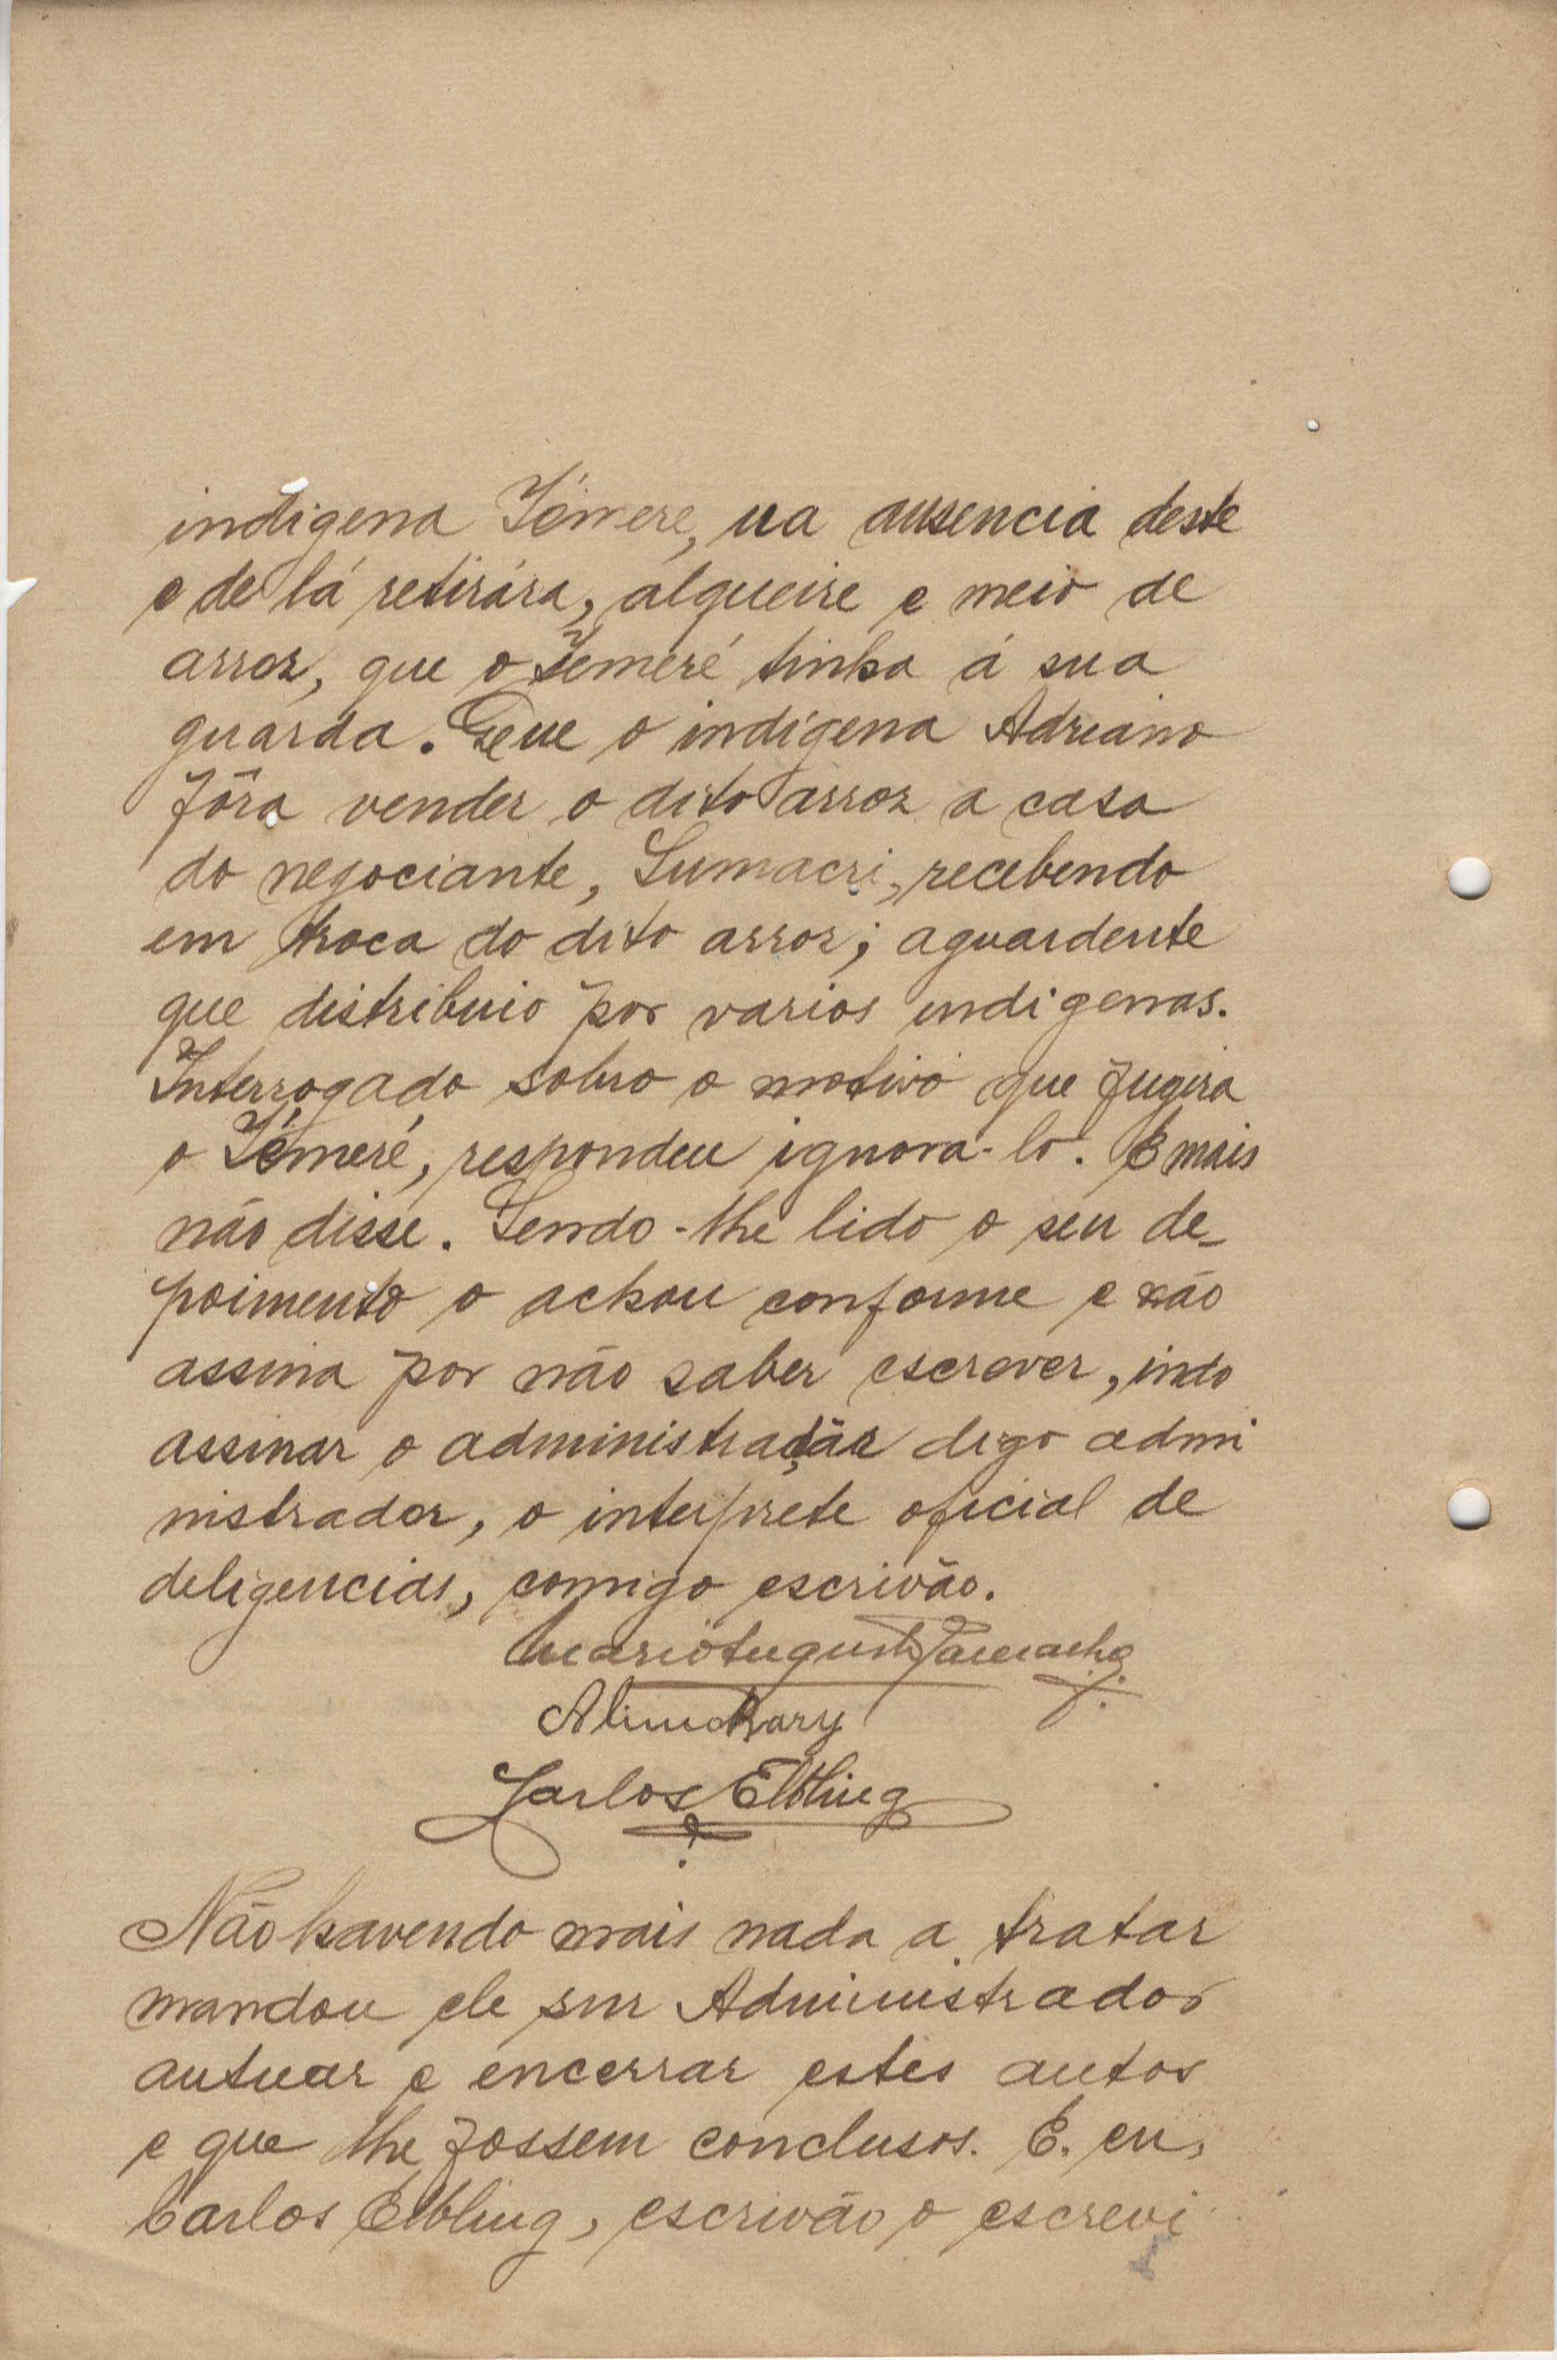 indigena Témere, na ausencia deste
e de lá retirára, alqueire e meio de
arroz, que o Temeré tinha á sua
guarda. Que o indígena Adriano
fôra vender o dito arroz a casa
do negociante, Sumacri, recebendo
em troca do dito arroz; aguardente
que distribuio por varios indigenas.
Interrogado sobre o motivo que fugira
o Témeré, respondeu ignora-lo. E mais
não disse. Sendo-lhe lido o seu de-
poimento o achou conforme e não
assina por não saber escrever, indo
assinar o administração digo admi
nistrador, o interprete oficial de
deligencias, comigo escrivão.
Mario Augusto
Carlos Elbling
Não havendo mais nada a tratar
mandou ele snr Administrador
autuar e encerrar estes autos
e que lhe fossem conclusos. E. eu,
Carlos Elbling, escrivão o escrevi